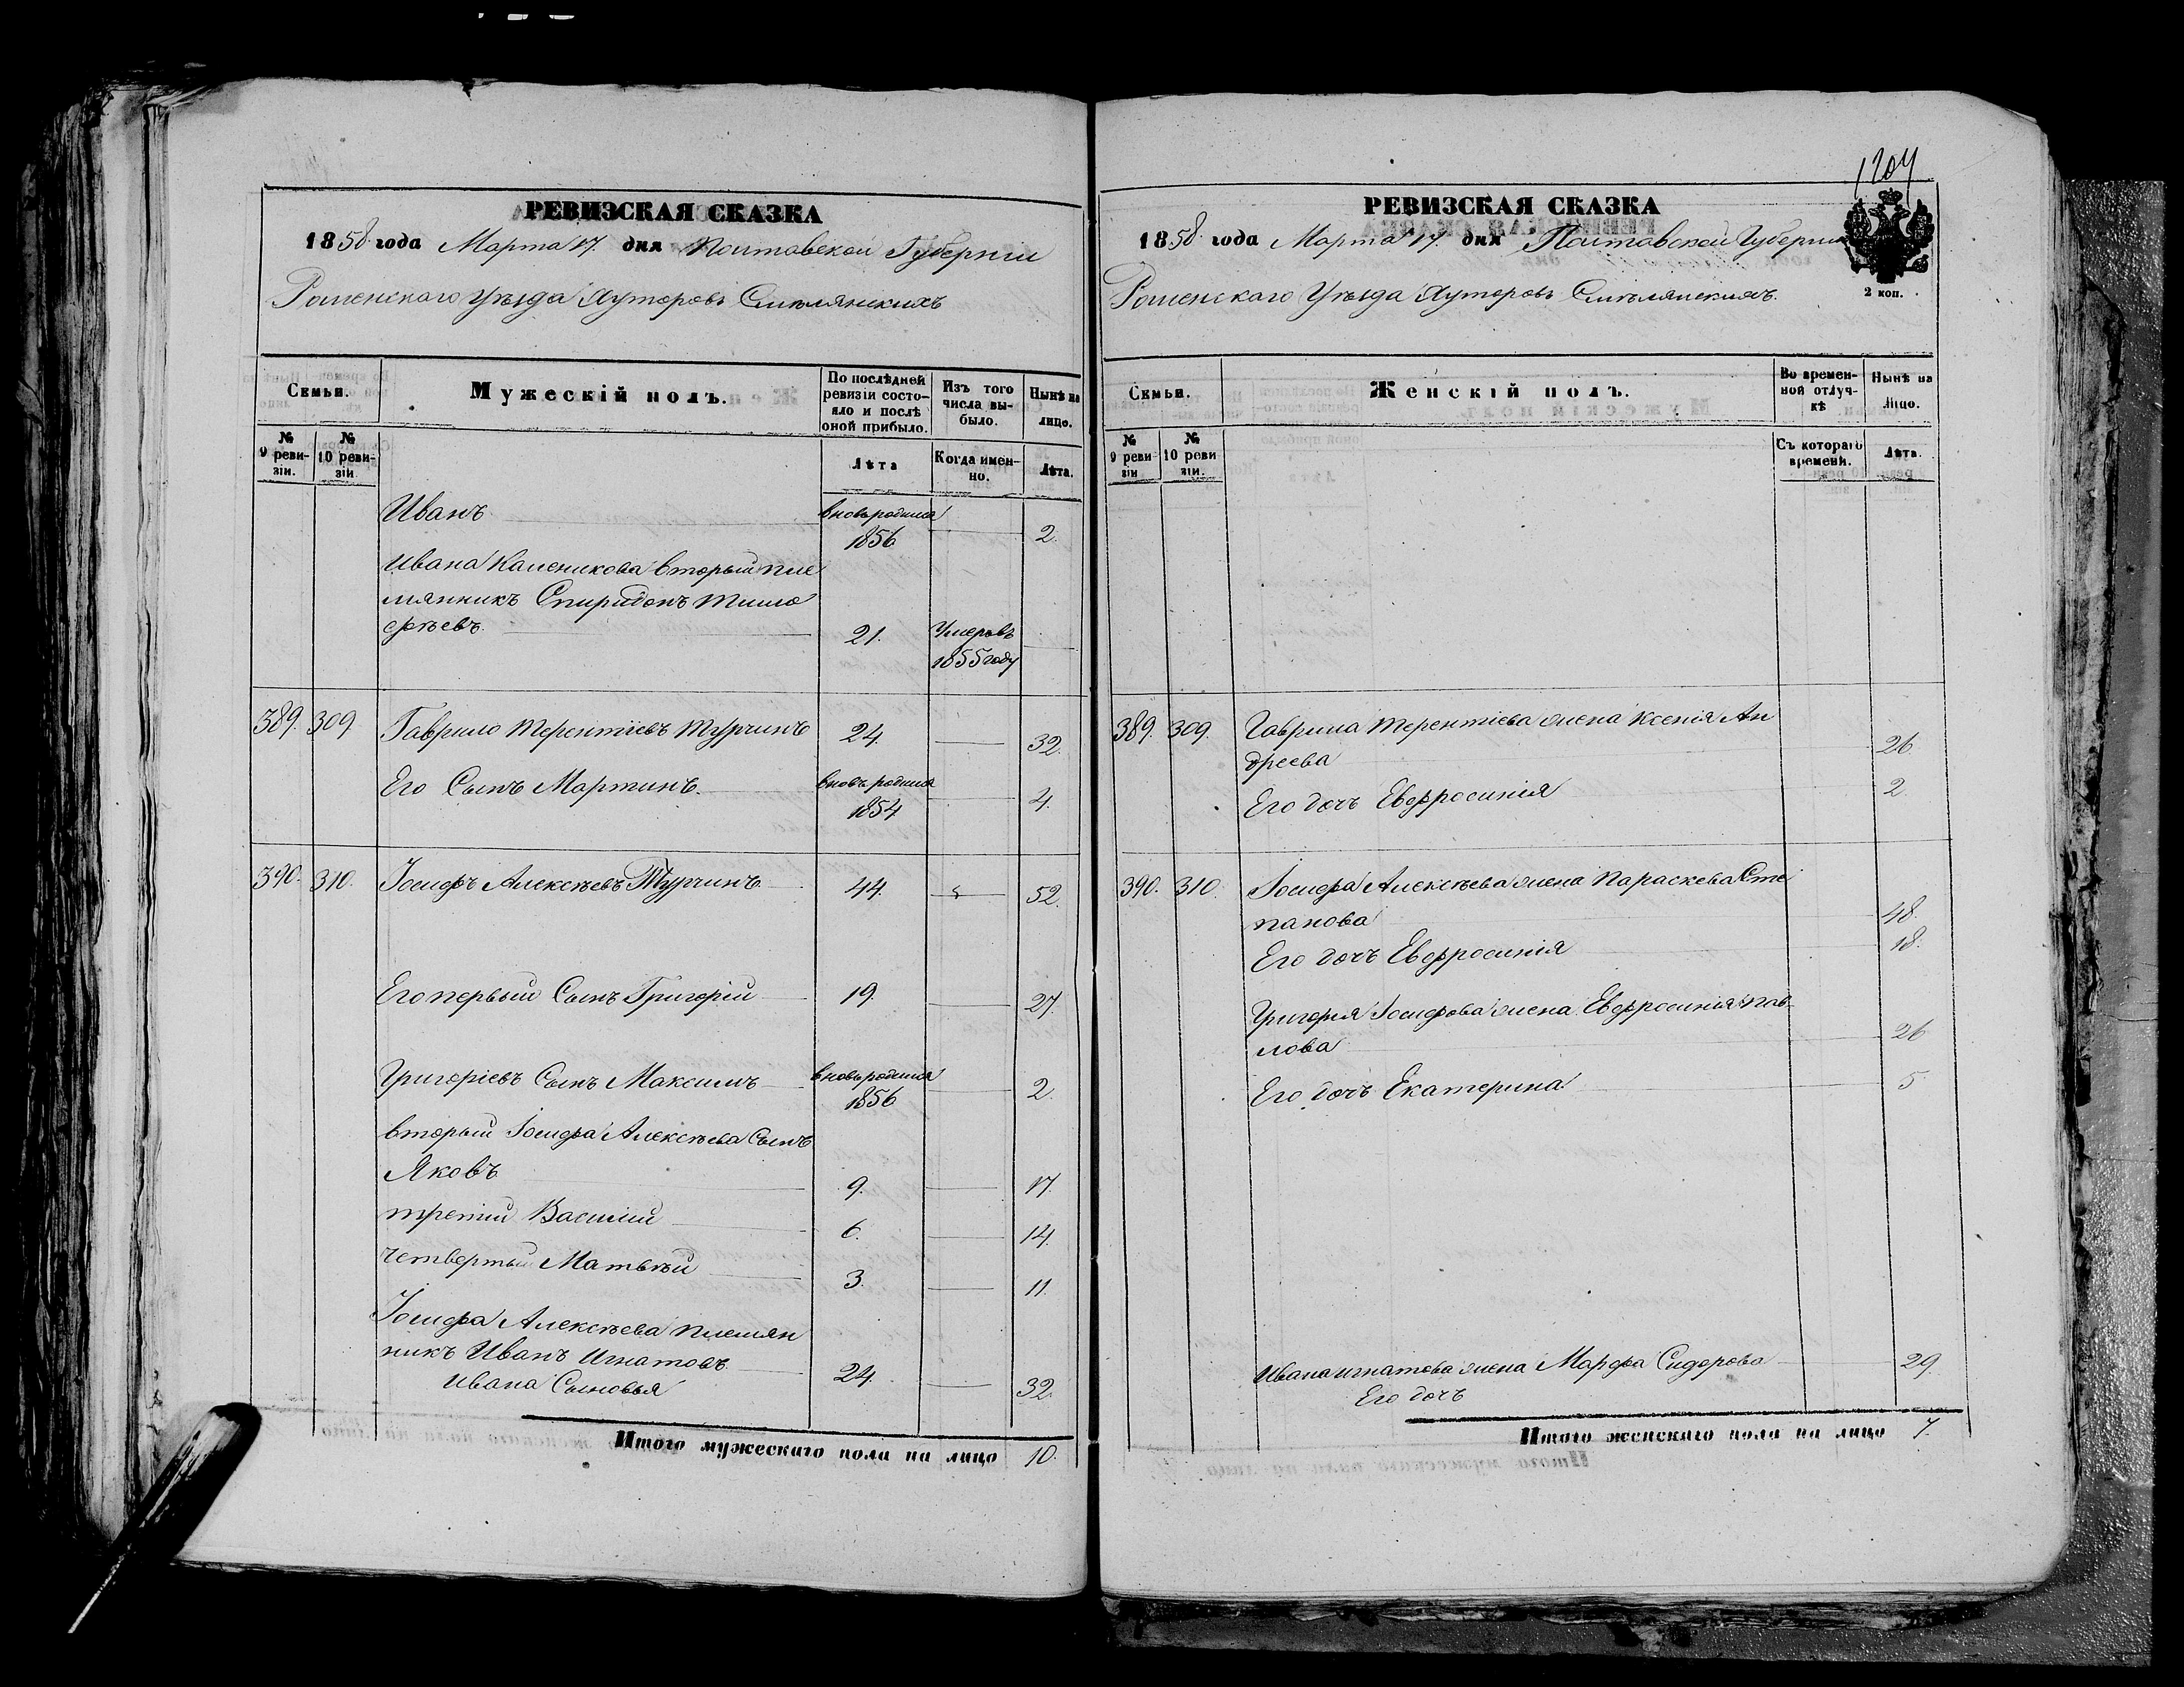 РЕВИЗСКАЯ СКАЗКА
1858 года Марта 17. дня Полтавской Губерніи
Роменскаго Уѣзда Хуторовъ Смѣлянскихъ
Семьи.
Мужескій полъ.
По послѣдней ревизіи состояло и послѣ оной прибыло.
Изъ того числа выбыло.
Нынѣ на лицо.
№ 9 ревизіи.
№ 10 ревизіи.
Лѣта
Когда именно.
Лѣта.
Иванъ вновьродился
1856 2.
Ивана Каленикова вторый пле
мянникъ Спиридонъ Тимо
фѣевъ 21. Умеръ въ
1855 году
389. 309. Гаврило Терентіевъ Турчинъ 24. 32.
Его Сынъ Мартинъ. вновь родился
1854 4.
390. 310. Іосифъ Алексѣевъ Турчинъ 44. 52.
Его первый Сынъ Григорій 19. 27.
Григоріевъ Сынъ Максимъ вновьродился
1856 2.
вторый Іосифа Алексѣева Сынъ
Яковъ 9. 17.
третій Василій 6. 14.
четвертый Матвѣй 3. 11.
Іосифа Алексѣева племян
никъ Иванъ Игнатовъ 24. 32.
Ивана Сыновья
Итого мужескаго пола на лицо 10.
1204
РЕВИЗСКАЯ СКАЗКА
1858 года Марта 17. дня Полтавской Губерніи
2 коп.
Роменскаго Уѣзда Хуторовъ Смѣлянскихъ.
Семьи.
Женскій полъ.
Во временной отлучкѣ
Нынѣ на лицо.
№ 9 ревизіи
№ 10 ревизіи.
Съ котораго времени.
Лѣта.
389. 309. Гаврила Терентіева жена Ксенія Ан
дреева 26
Его дочь Евфросинія 2.
390. 310. Іосифа Алексѣева жена Параскева Сте
панова 48.
Его дочь Евфросинія 18.
Григорія Іосифова жена Евфросинія Пав
лова 26
Его дочь Екатерина 5
Ивана Игнатова жена Марфа Сидорова 29.
Его дочь
Итого женскаго пола на лицо 7.